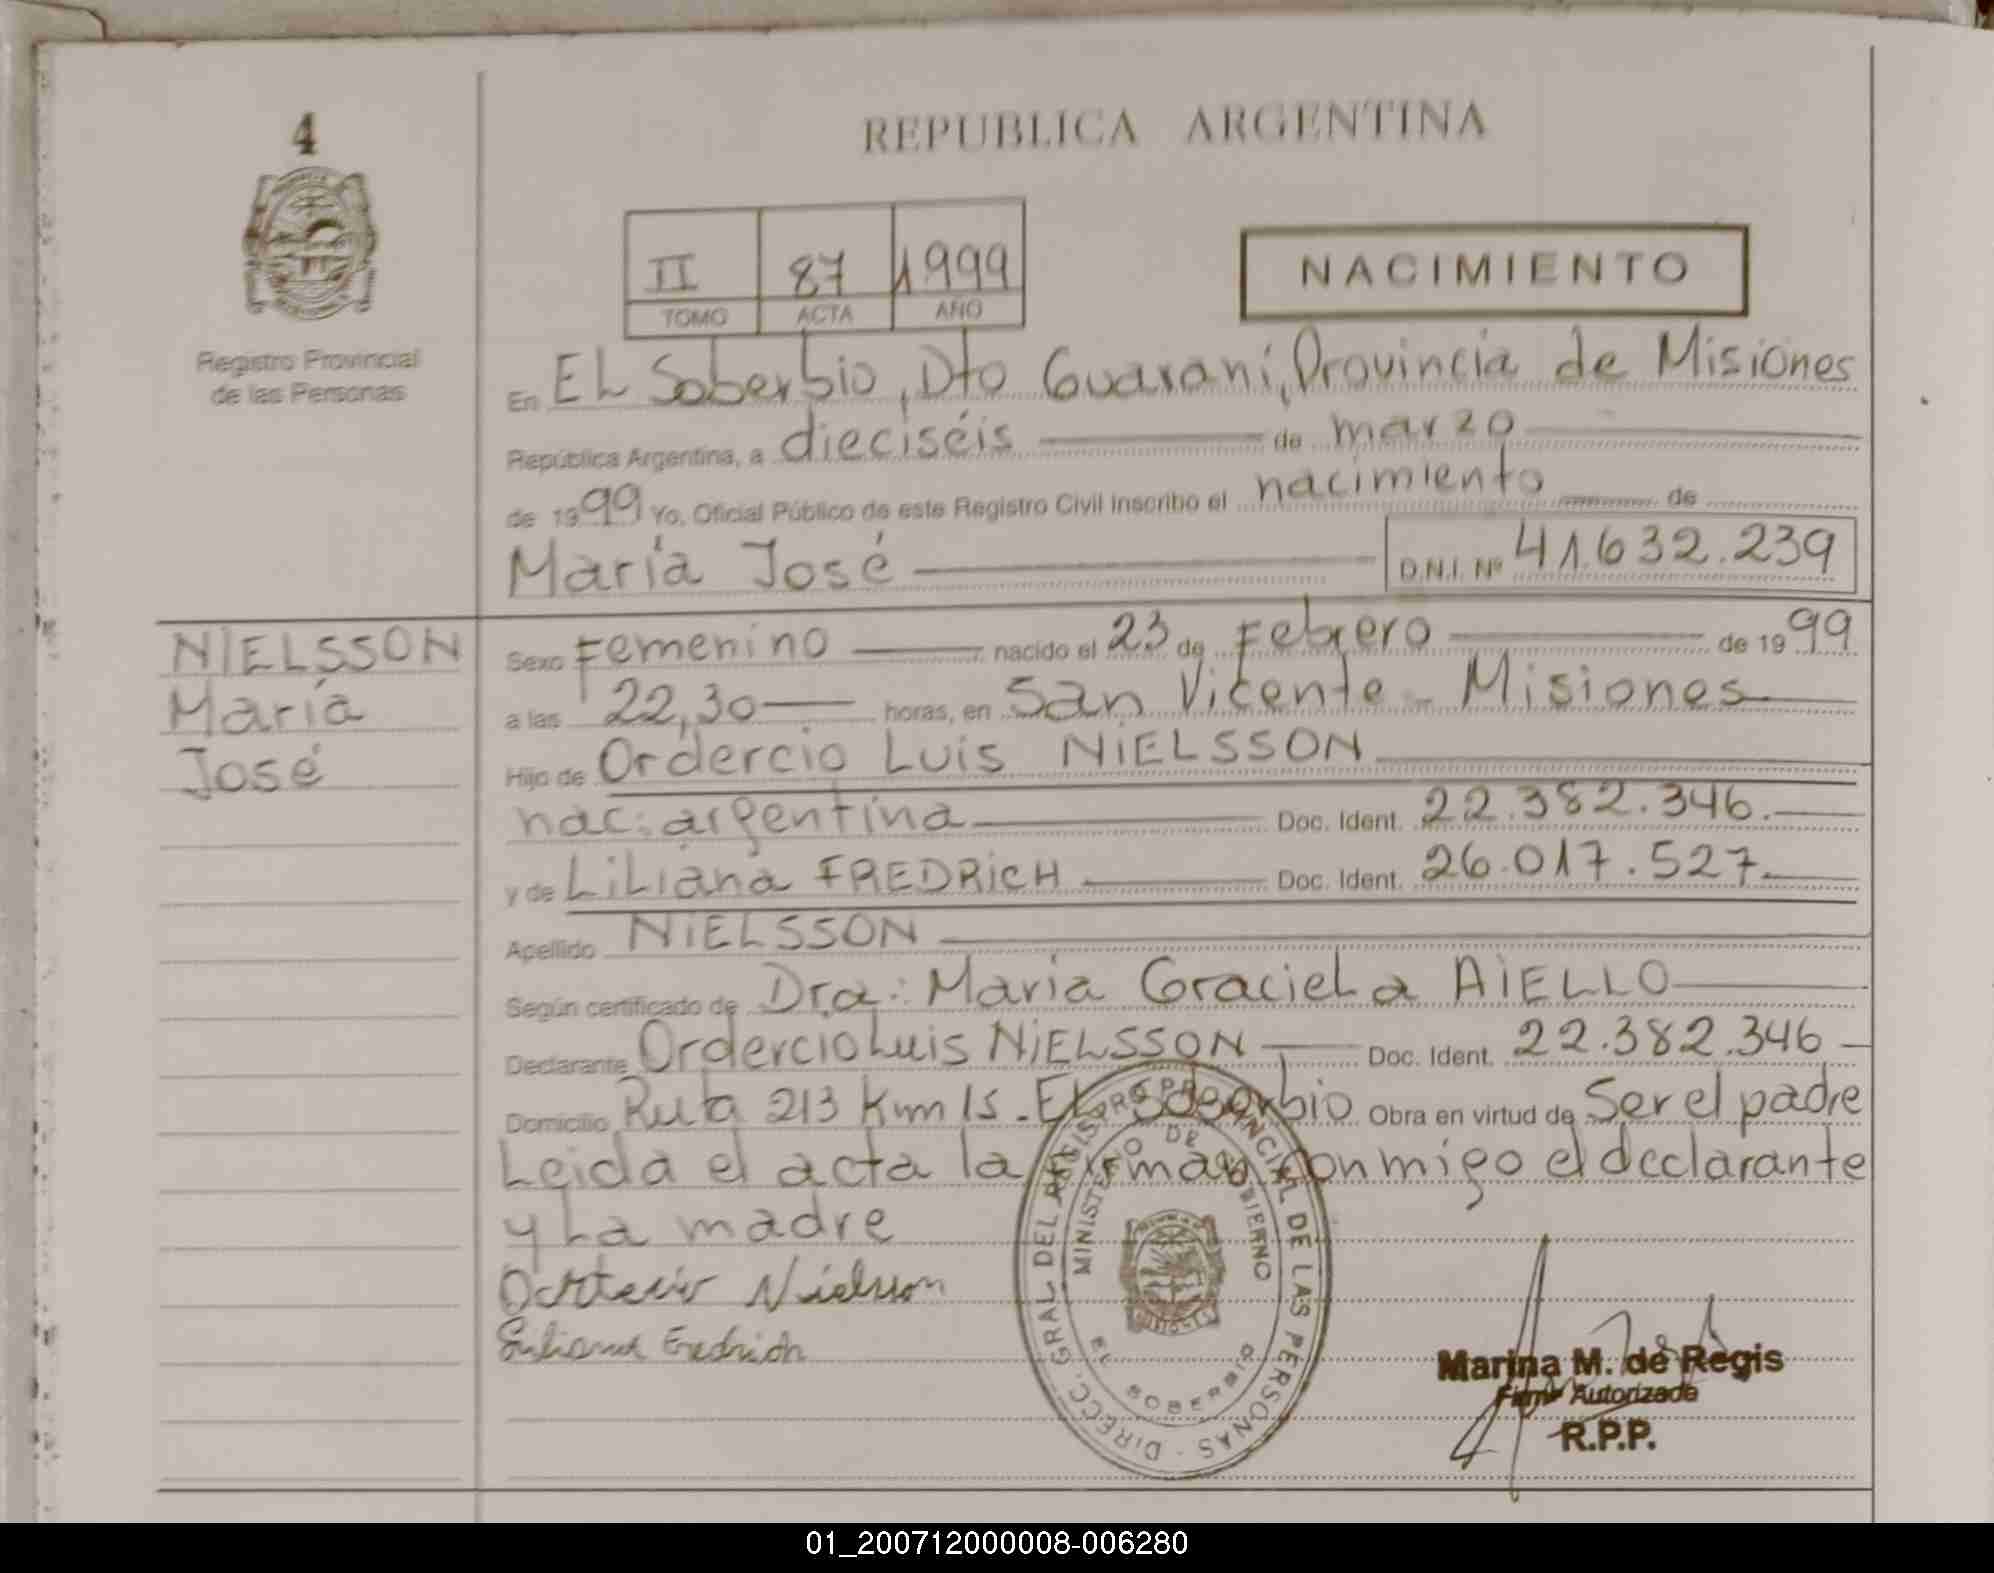 4
Registro Provincial
de las Personas
REPUBLICA ARGENTINA
II 87 1999
TOMO ACTA AÑO
NACIMIENTO
En EL Soberbio, Dto Guaraní, Provincia de Misiones
República Argentina, a dieciséis de marzo
de 1999 Yo, Oficial Público de este Registro Civil inscribo el nacimiento de
María José D.N.I. Nº 41.632.239
NIELSSON
María
José
Sexo Femenino nacido el 23 de Febrero de 1999
a las 22,30 horas, en San Vicente - Misiones
Hijo de Ordercio Luis NIELSSON
nac: argentina Doc. Ident. 22.382.346.
y de LiLiana FREDRICH Doc. Ident. 26.017.527
Apellido NIELSSON
Según certificado de Dra: María Graciela AIELLO
Declarante Ordercio Luis NIELSSON Doc. Ident. 22.382.346
Domicilio Ruta 213 Km 15 - EL Soberbio Obra en virtud de Ser el padre
Leida el acta la firman conmigo el declarante
y La madre
Nielsson
Liliana Fredrich
DIRECC. GRAL DEL REGISTRO PROVINCIAL DE LAS PERSONAS
MINISTERIO DE GOBIERNO
EL SOBERBIO
Marina M. de Regis
Firma Autorizada
R.P.P.
01_200712000008-006280